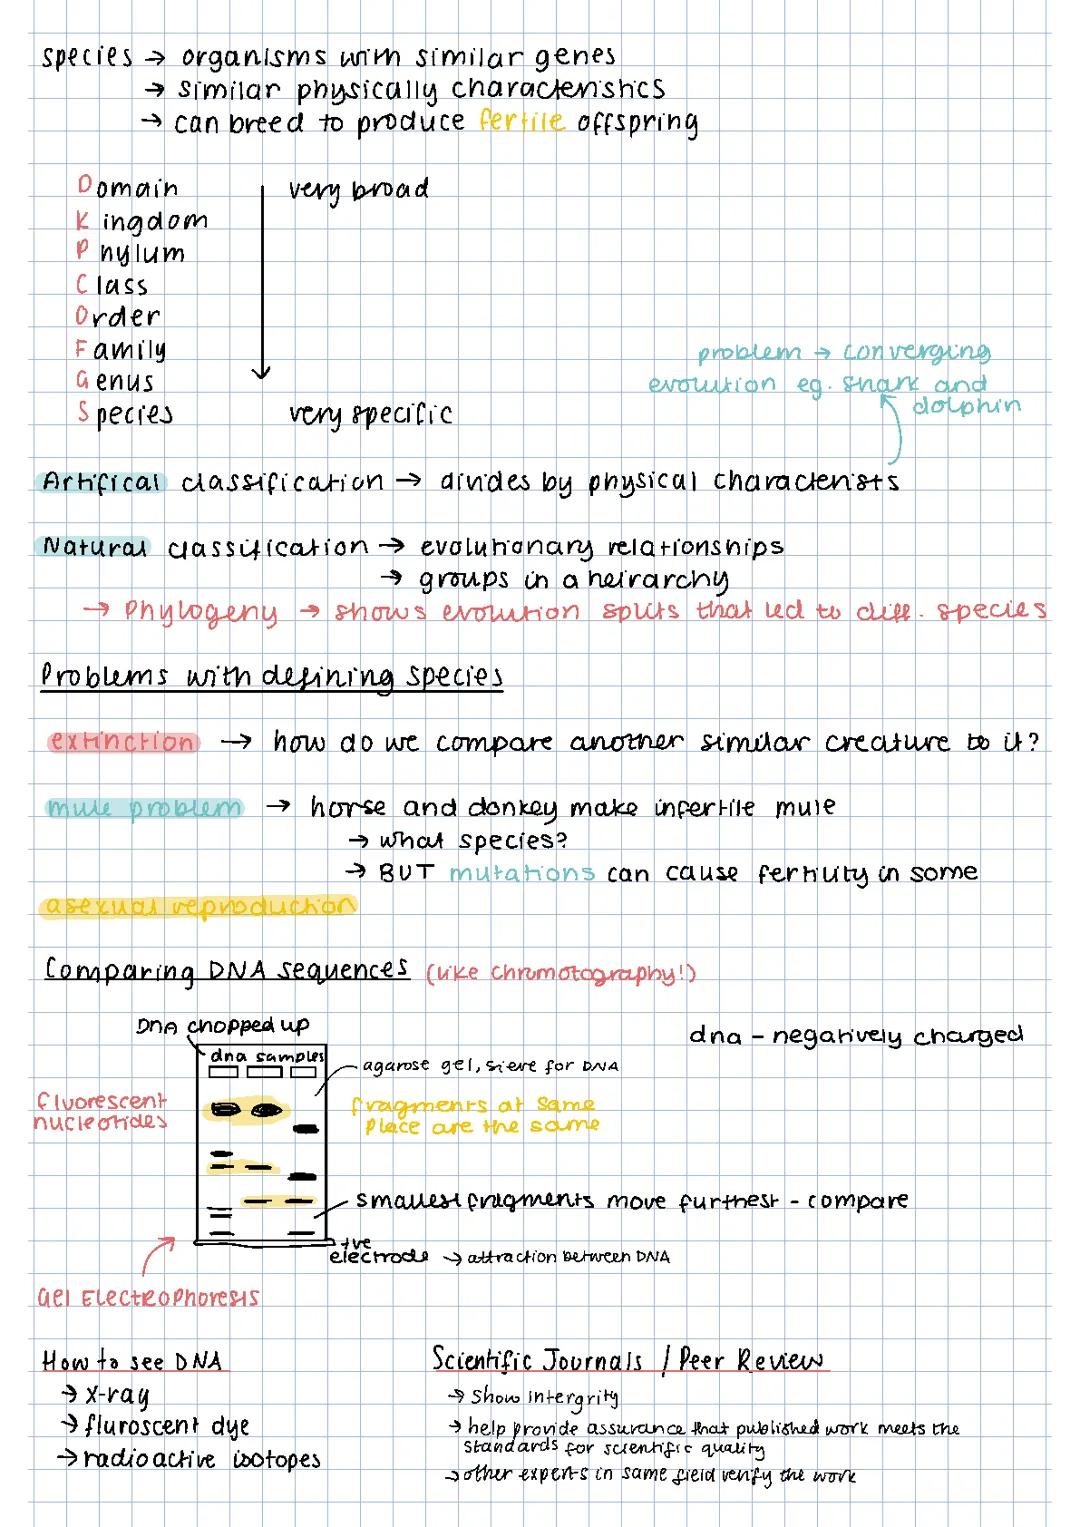 species → organisms with similar genes
→ similar physically characteristics
→ can breed to produce fertile offspring
Domain
very broad
Kingdom
Phylum
Class
Order
Family
Genus
Species
very specific
problem → converging
evolution eg. shark and
dolphin
Artifical classification → divides by physical characterists
Natural classification → evolutionary relationships
→ groups in a heirarchy
→ Phylogeny → shows evolution splits that led to diff. species
Problems with defining species
extinction → how do we compare another similar creature to it?
mule problem → horse and donkey make infertile mule
→ what species?
→ BUT mutations can cause fertility in some
asexual reproduction
Comparing DNA sequences (like chromotography!)
DNA chopped up
dna - negatively charged
dna samples
agarose gel, sieve for DNA
fluorescent
nucleotides
fragments at same
place are the same
smallest fragments move furthest - compare
+ve
electrode → attraction between DNA
Gel Electrophoresis
How to see DNA
→ X-ray
→ fluroscent dye
→ radioactive isotopes
Scientific Journals / Peer Review
→ Show intergrity
→ help provide assurance that published work meets the
standards for scientific quality
→ other experts in same field verify the work